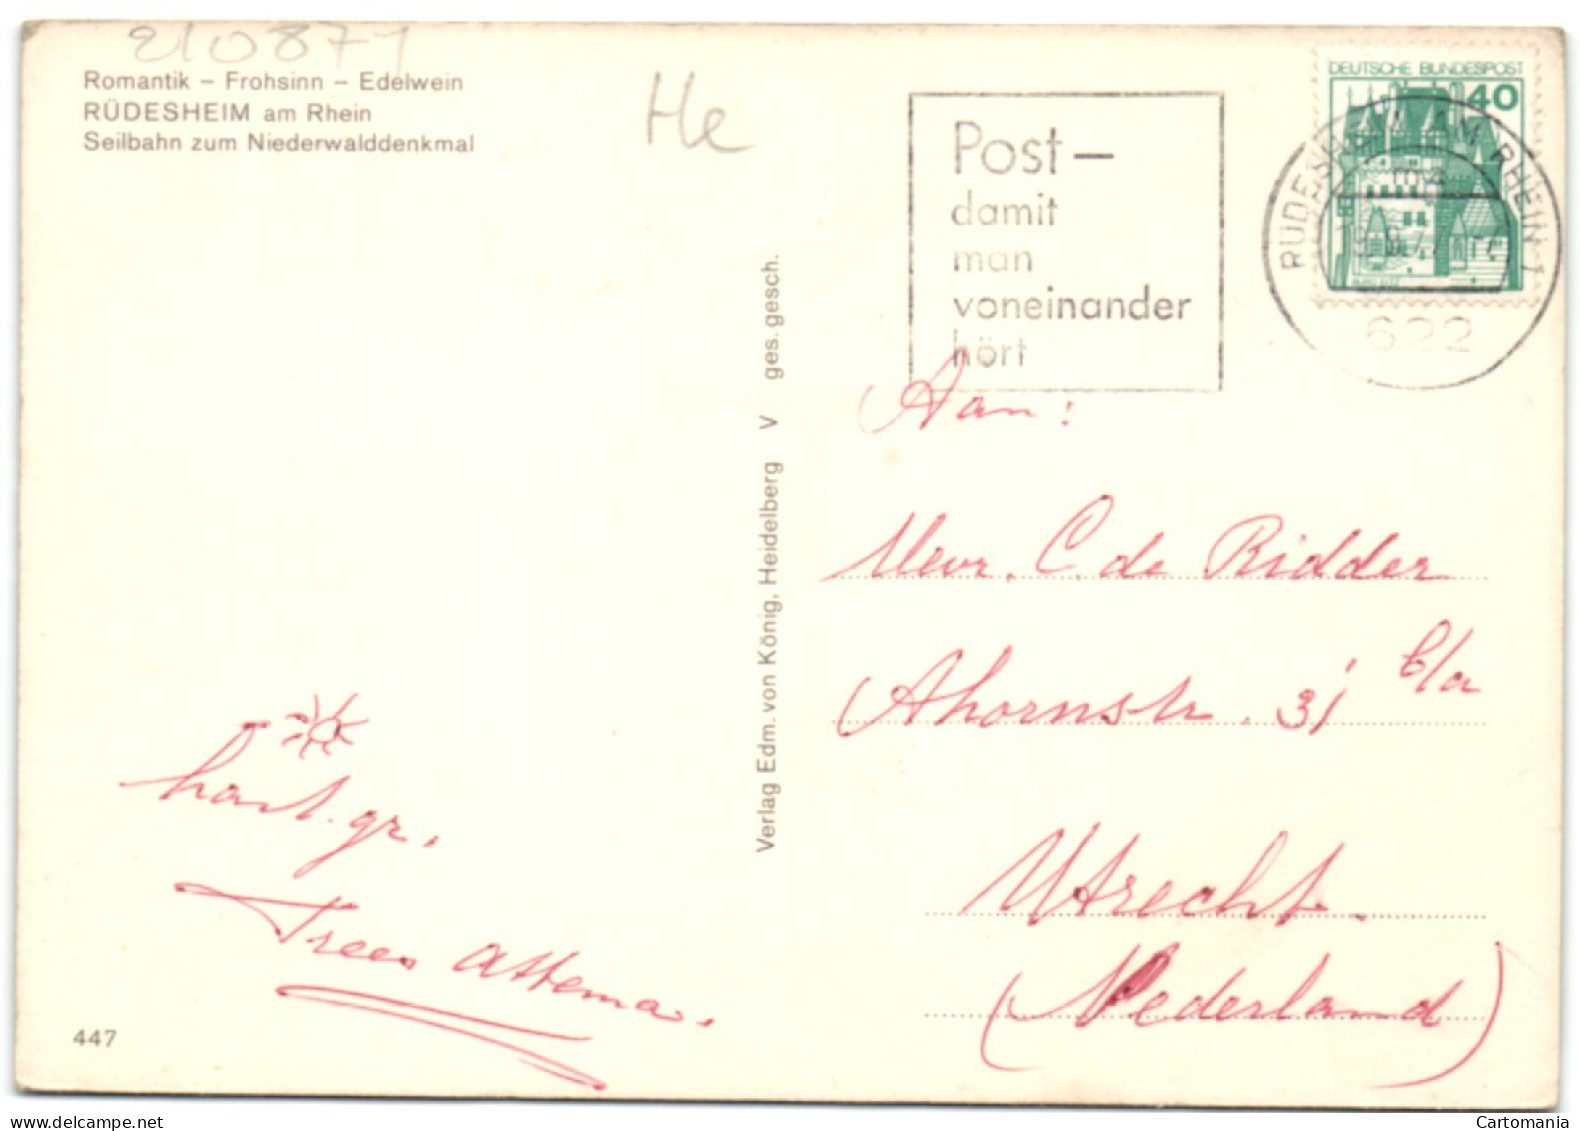 210871
Romantik – Frohsinn – Edelwein
RÜDESHEIM am Rhein
Seilbahn zum Niederwalddenkmal
He
Post –
damit
man
voneinander
hört
DEUTSCHE BUNDESPOST
40
RÜDESHEIM AM RHEIN 1
622
Verlag Edm. von König, Heidelberg V ges. gesch.
Aan:
Mevr. C. de Ridder
Ahornstr. 31 b/a
Utrecht.
(Nederland)
hart. gr.
Trees Attema.
447
Cartomania